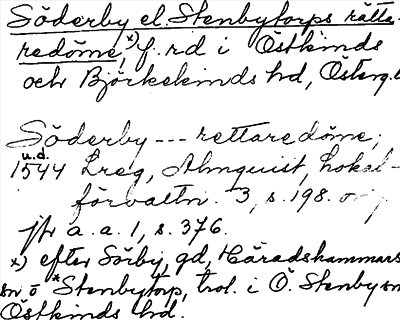 Söderby el. Stenbytorps rätta-
redöme,x) f. rd i Östkinds
och Björkekinds hd, Österg.l
Söderby --- rettaredöme;
u.d.
1544 Lreg, Almquist, Lokal-
förvaltn. 3, s. 198.
jfr a. a. 1, s. 376.
x) efter Sörby, gd, Häradshammars
sn o *Stenbytorp, trol. i Ö. Stenby sn
Östkinds hd.